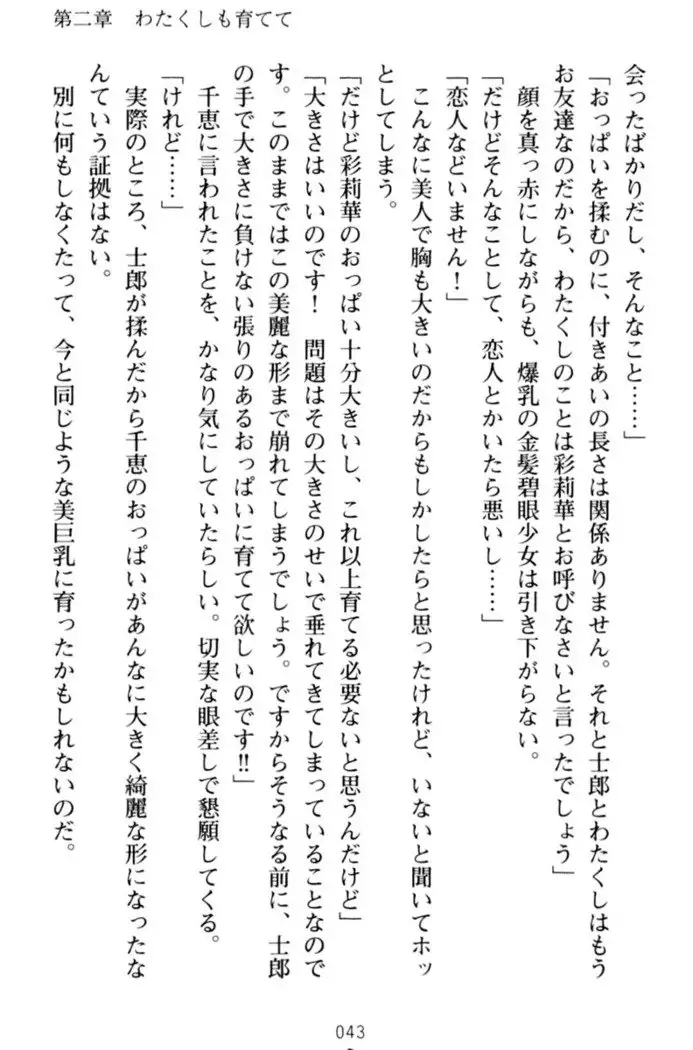 第二章　わたくしも育てて
会ったばかりだし、そんなこと……」
「おっぱいを揉むのに、付きあいの長さは関係ありません。それと士郎とわたくしはもう
お友達なのだから、わたくしのことは彩莉華とお呼びなさいと言ったでしょう」
　顔を真っ赤にしながらも、爆乳の金髪碧眼少女は引き下がらない。
「だけどそんなことして、恋人とかいたら悪いし……」
「恋人などいません！」
　こんなに美人で胸も大きいのだからもしかしたらと思ったけれど、いないと聞いてホッ
としてしまう。
「だけど彩莉華のおっぱい十分大きいし、これ以上育てる必要ないと思うんだけど」
「大きさはいいのです！　問題はその大きさのせいで垂れてきてしまっていることなので
す。このままではこの美麗な形まで崩れてしまうでしょう。ですからそうなる前に、士郎
の手で大きさに負けない張りのあるおっぱいに育てて欲しいのです‼」
　千恵に言われたことを、かなり気にしていたらしい。切実な眼差しで懇願してくる。
「けれど……」
　実際のところ、士郎が揉んだから千恵のおっぱいがあんなに大きく綺麗な形になったな
んていう証拠はない。
　別に何もしなくたって、今と同じような美巨乳に育ったかもしれないのだ。
043